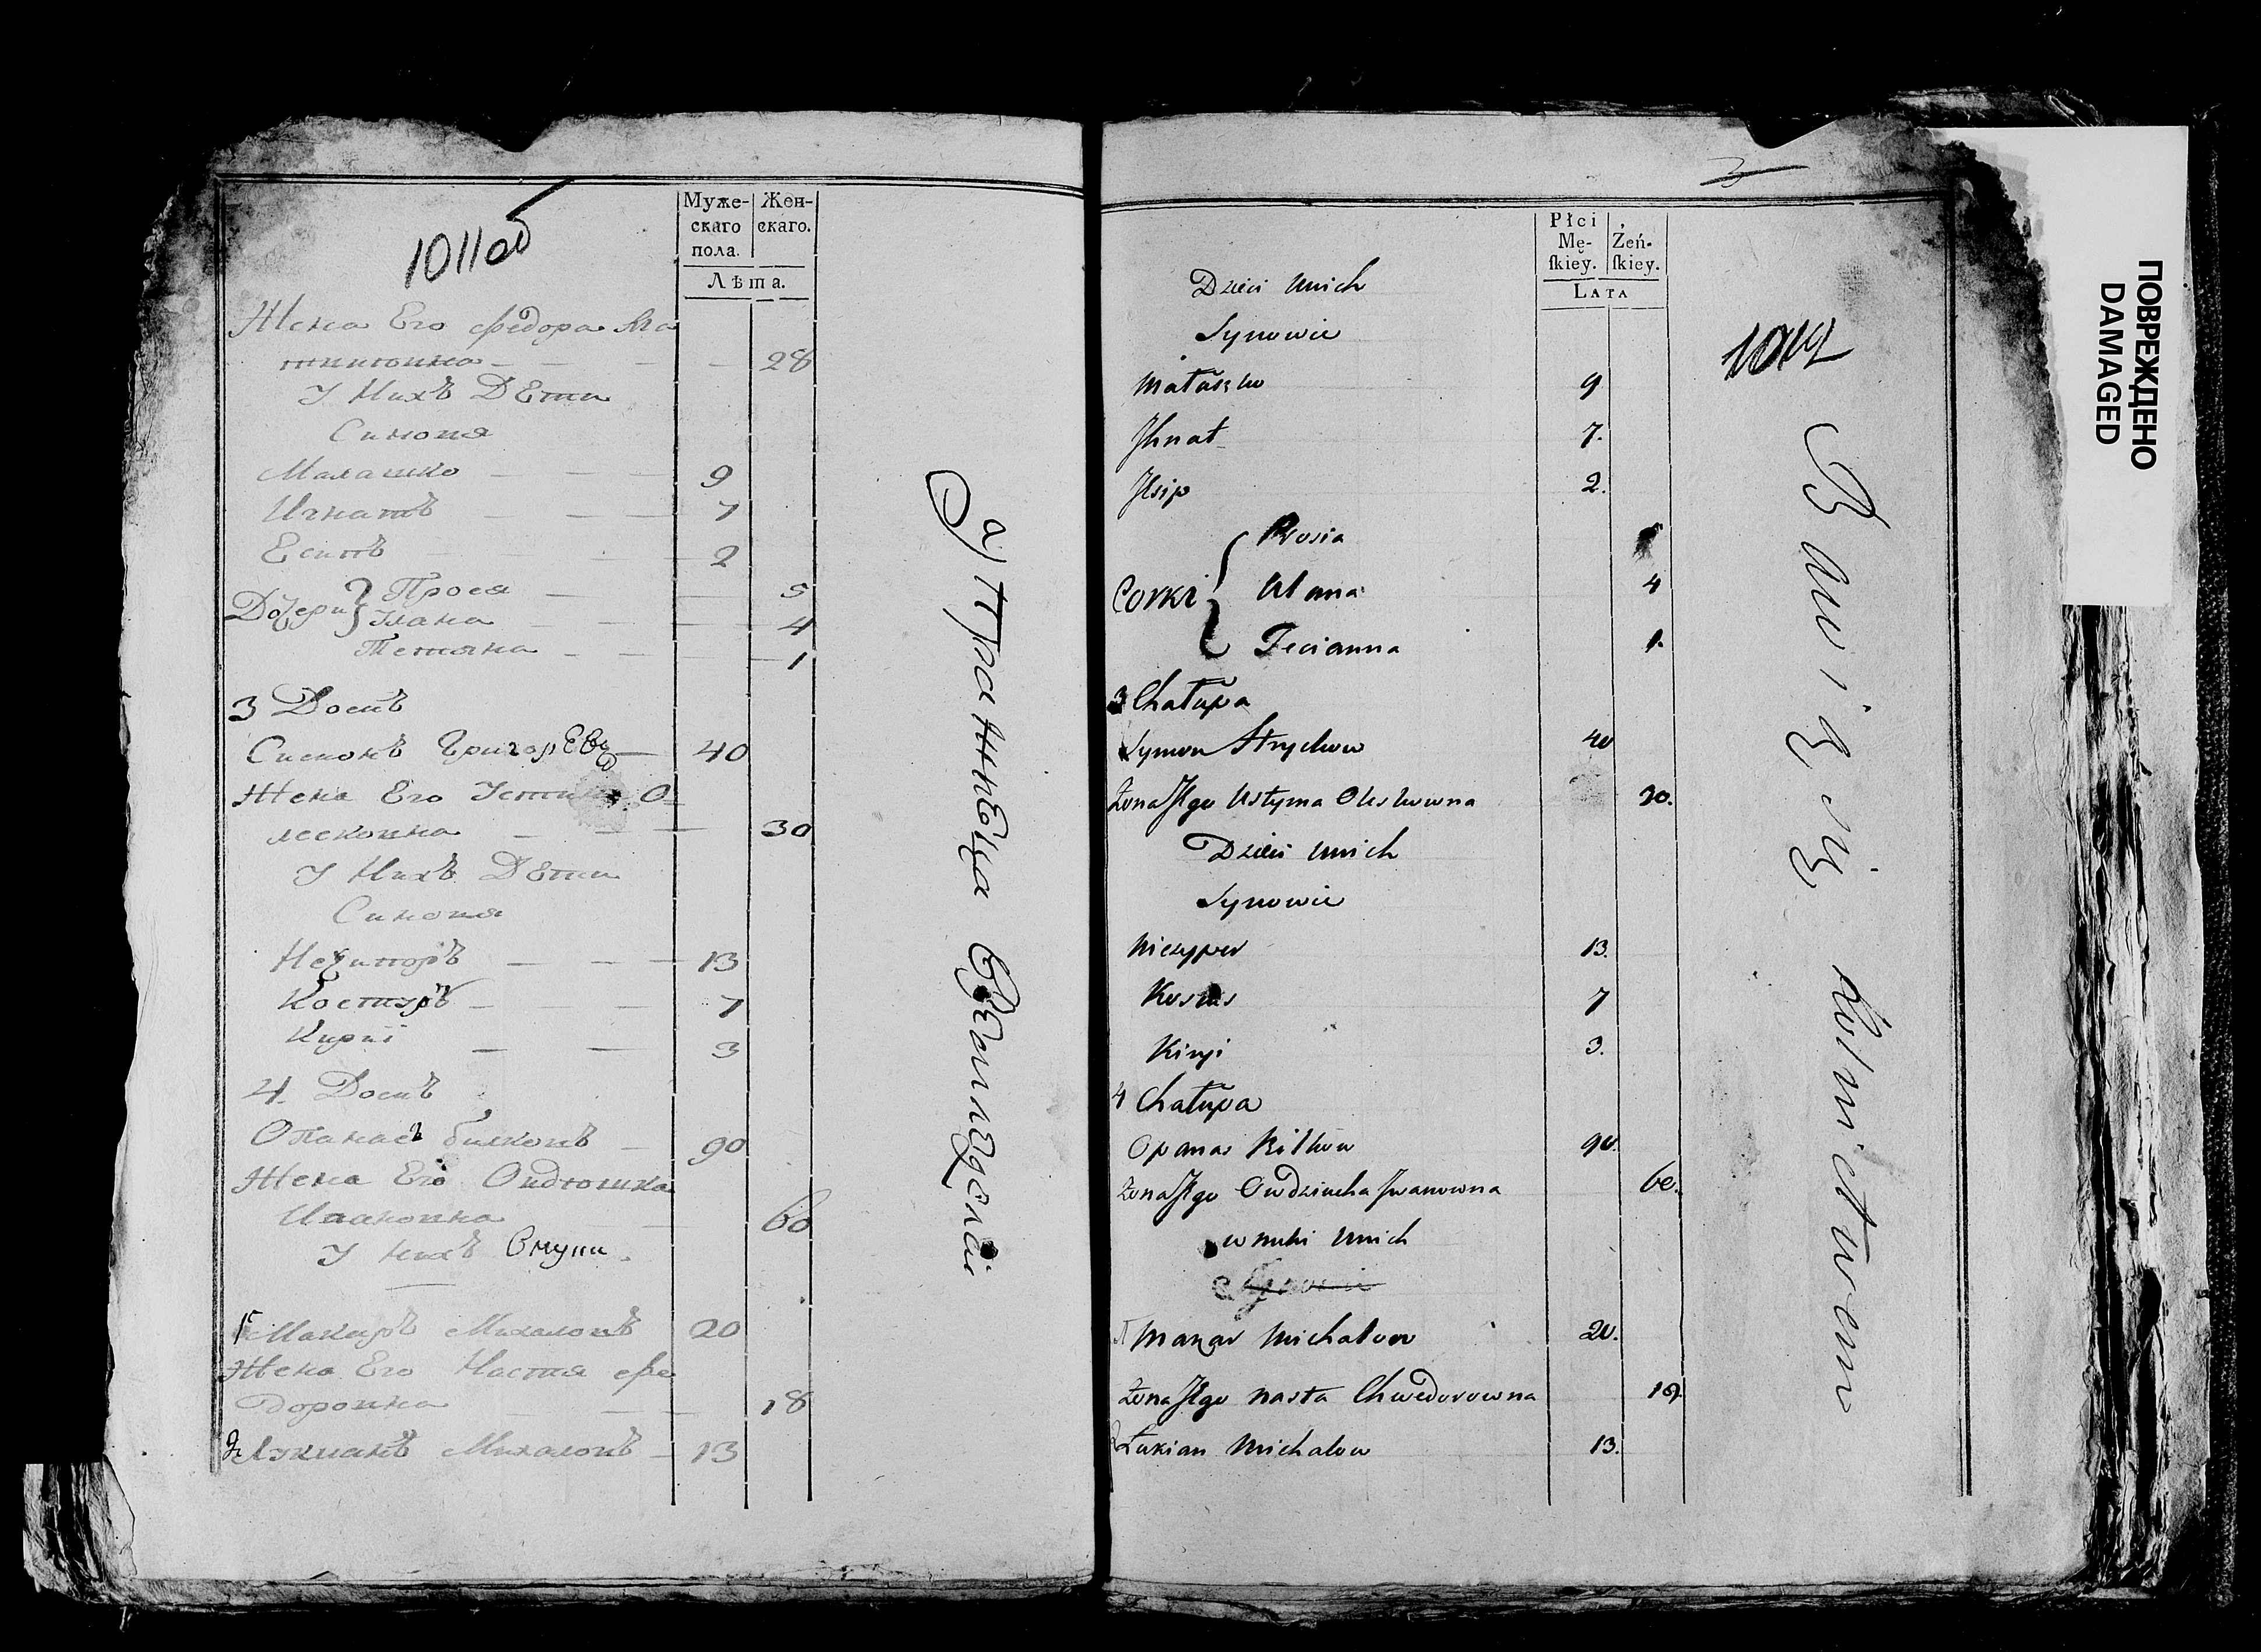 1011об
Муже-
скаго
пола.
Жен-
скаго.
Лѣта.
Жена Его Федора Ма
28
У Нихъ Дети
Синовя
Малашко 9
Игнатъ 7
Есипъ 2
Дочери Прося 5
Улана 4
Тетяна 1
3 Домъ
Симонъ Григор 40
Жена Его Устина О
лесковна 30
У Нихъ Дети
Синовя
Нечипоръ 13
7
Кирии 3
4. Домъ
Опанасъ билковъ 90
Жена Его
Ивановна 60
У нихъ Внуки
Макаръ Михаловъ 20
Жена Его Настя Фе
доровна 18
2 Лукианъ Михаловъ 13
Płci
Mę-
ſkiey.
Żeń-
ſkiey.
LATA
Dzieci unich
Synowie
Matuszko 9
Jhnat 7.
Jlsip 2.
Corki Prosia
Ulana 4
Tecianna 1.
3 Chałupa
Symon Hrychow 40
Zona Jego Ustyma Oleskowna 30.
Dzieci unich
Synowie
Niczypor 13.
7
Kiryi 3.
4 Chałupa
Opanas Bilkow 90.
Zona Jego Owdziucha Jwanowna 60.
wnuki unich
Makar Michałow 20.
Zona Jego Nasta Chwedorowna 18.
Łukian Michałow 13.
ПОВРЕЖДЕНО
DAMAGED